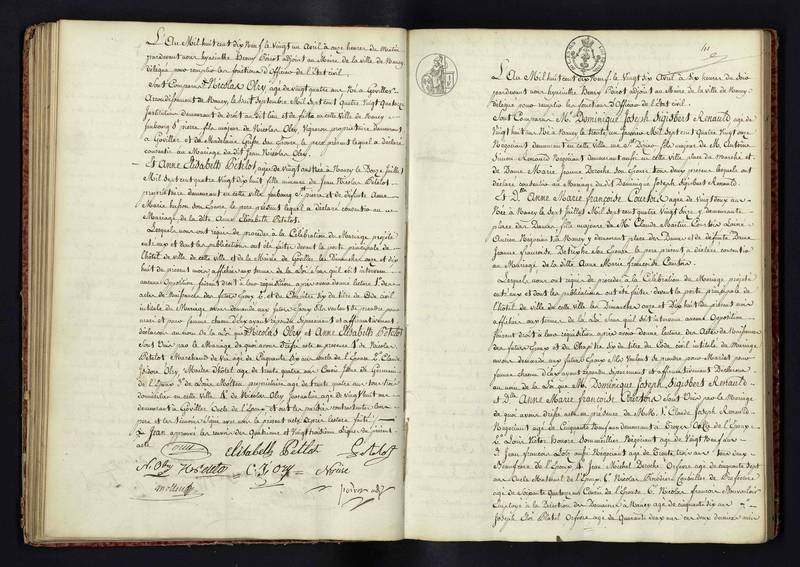 L'An Mil huit cent dix neuf, le vingt un Avril à onze heures du Matin
pardevant nous hyacinthe Henry Poirot adjoint au Maire de la ville de Nancy
délégué pour remplir les fonctions d'Officier de l'état civil.
Sont Comparus Mr. Nicolas Olry, agé de vingt quatre ans Né à Goviller
Arrondissement de Nancy, le huit Septembre Mil Sept cent Quatre Vingt
Instituteur demeurant de droit au dit lieu et de fait en cette Ville de Nancy
faubourg St pierre, fils majeur de Nicolas Olry, Vigneron propriétaire demeurant
à Goviller et de Madelaine
consentir au Mariage du dit Jean Nicolas Olry.
Et Anne Elisabeth Petelot, agée de vingt ans Née à Nancy le Douze Juillet
Mil Sept cent quatre vingt dix huit fille mineure de Jean Nicolas Petelot
propriétaire demeurant en cette ville faubourg St pierre et de défunte Anne
Marie son Epouse, le père présent lequel a déclaré consentir au
Mariage de la dite Anne Elisabeth Petelot.
Lesquels nous ont requis de procéder à la Célébration du Mariage projeté
entr'eux et dont les publications ont été faites devant la porte principale de
l'hôtel de ville de cette ville et de la Mairie de Goviller les Dimanches onze et dix
huit du présent mois, affichées aux termes de la loi sans qu'il est intervenu
aucune Opposition faisant droit à leur réquisition après avoir donné lecture
actes de Naissance des futurs Epoux et du Chapitre six du titre du Code civil
intitulé du Mariage avons demandé aux futurs Epoux s'ils veulent se prendre pour
mari et pour femme chacun d'eux ayant répondu séparément et affirmativement
déclarons au nom de la loi que Nicolas Olry et Anne Elisabeth Petelot
Sont Unis par le Mariage de quoi avons dressé acte en présence de Nicolas
Petelot Marchand de Vin agé de Cinquante six ans oncle de l'Epouse 2° Claude
Isidore Olry, Maitre d'hôtel agé de trente quatre ans Cousin
de l'Epoux 3° de Louis Mottin propriétaire agé de trente quatre ans tous trois
domiciliés en cette ville 4° de Nicolas Olry Journalier agé de Vingt huit ans
demeurant à Goviller Oncle de l'Epoux et ont les parties contractantes
père et les témoins signé avec nous le présent acte, Après lecture faite
acte.
Olry Elisabeth Petelot Petelot
N. Olry C. I. Olry
mottin
poirot adj.
L'An Mil huit cent dix Neuf, le Vingt six Avril à six heures du Soir
pardevant nous hyacinthe Henry Poirot adjoint au Maire de la ville de Nancy
délégué pour remplir les fonctions d'Officier de l'Etat civil.
Sont Comparus Mr. Dominique Joseph Sigisbert Renauld, agé de
Vingt huit ans Né à Nancy le trente un Janvier Mil Sept cent Quatre Vingt onze
Négociant demeurant en cette ville fils majeur de Mr. Antoine
Simon Renauld Négociant demeurant aussi en cette ville place du Marché et
de Dame Marie Jeanne son Epouse tous deux présens lesquels ont
déclaré consentir au Mariage du dit Dominique Joseph Sigisbert Renauld.
Et Dlle Anne Marie françoise Courtois, agée de Vingt deux ans
Née à Nancy le Sept Juillet Mil Sept cent quatre Vingt Seize, y demeurante
place des Dames fille majeure de Mr. Claude Martin Courtois
Ancien Négociant à Nancy y demeurant place des Dames et de défunte Dame
Jeanne françoise son Epouse, le père présent a déclaré consentir
au Mariage de la dite Anne Marie françoise Courtois.
Lesquels nous ont requis de procéder à la Célébration du Mariage projeté
entr'eux et dont les publications ont été faites devant la porte principale de
l'hôtel de ville de cette ville les Dimanches onze et Dix huit du présent mois
affichées aux termes de la loi Sans qu'il soit intervenu aucune Opposition
faisant droit à leur réquisition après avoir donné lecture des Actes de Naissance
des futurs Epoux et du Chapitre Six du titre du Code civil intitulé du Mariage
avons demandé aux futurs Epoux s'ils veulent se prendre pour Mari et pour
femme chacun d'eux ayant répondu séparément et affirmativement Déclarons
au nom de la loi que Mr. Dominique Joseph Sigisbert Renauld
et Dlle Anne Marie françoise Courtois Sont Unis par le Mariage
de quoi avons dressé acte en présence de M.M. 1° Claude Joseph Renauld
Négociant agé de Cinquante Neuf ans demeurant à Troyes Oncle de l'Epoux
2° Louis Victor Honoré Négociant agé de Vingt Neuf ans
3° Jean françois aussi Négociant agé de Trente trois ans tous deux
de l'Epoux 4° Jean Michel Deroche Orfèvre agé de cinquante sept
ans Oncle Maternel de l'Epoux 5° Nicolas
agé de Soixante Quatorze ans Cousin de l'Epouse 6° Nicolas françois
Employé à la Direction des Domaines à Nancy agé de cinquante six ans 7°
Joseph Orfèvre agé de Quarante deux ans ces deux derniers amis